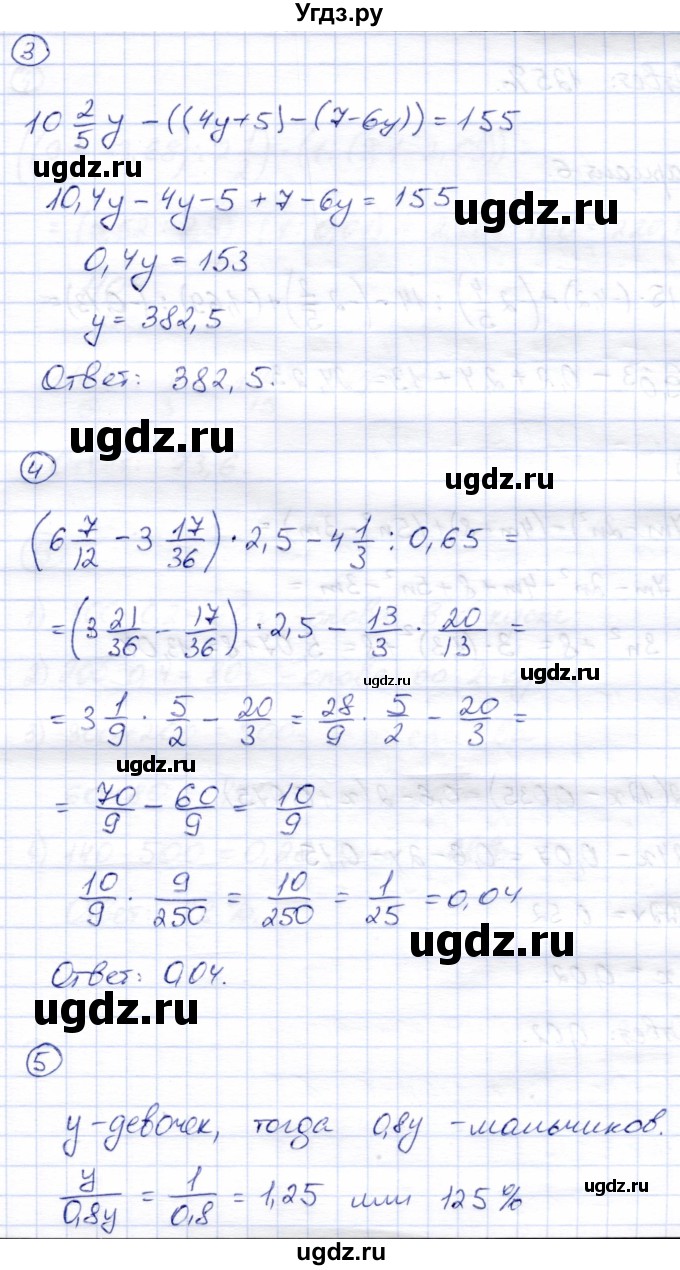 Угдз.ру
3
10 2/5 y - ((4y+5) - (7-6y)) = 155
ugdz.ru
10,4y - 4y - 5 + 7 - 6y = 155
ugdz.ru
0,4y = 153
y = 382,5
Ответ: 382,5.
ugdz.ru
4
ugdz.ru
(6 7/12 - 3 17/36) · 2,5 - 4 1/3 : 0,65 =
= (3 21/36 - 17/36) · 2,5 - 13/3 · 20/13 =
ugdz.ru
ugdz.ru
= 3 1/9 · 5/2 - 20/3 = 28/9 · 5/2 - 20/3 =
ugdz.ru
= 70/9 - 60/9 = 10/9
10/9 · 9/250 = 10/250 = 1/25 = 0,04
ugdz.ru
Ответ: 0,04.
ugdz.ru
5
y - девочек, тогда 0,8y - мальчиков.
y/0,8y = 1/0,8 = 1,25 или 125%
ugdz.ru
ugdz.ru